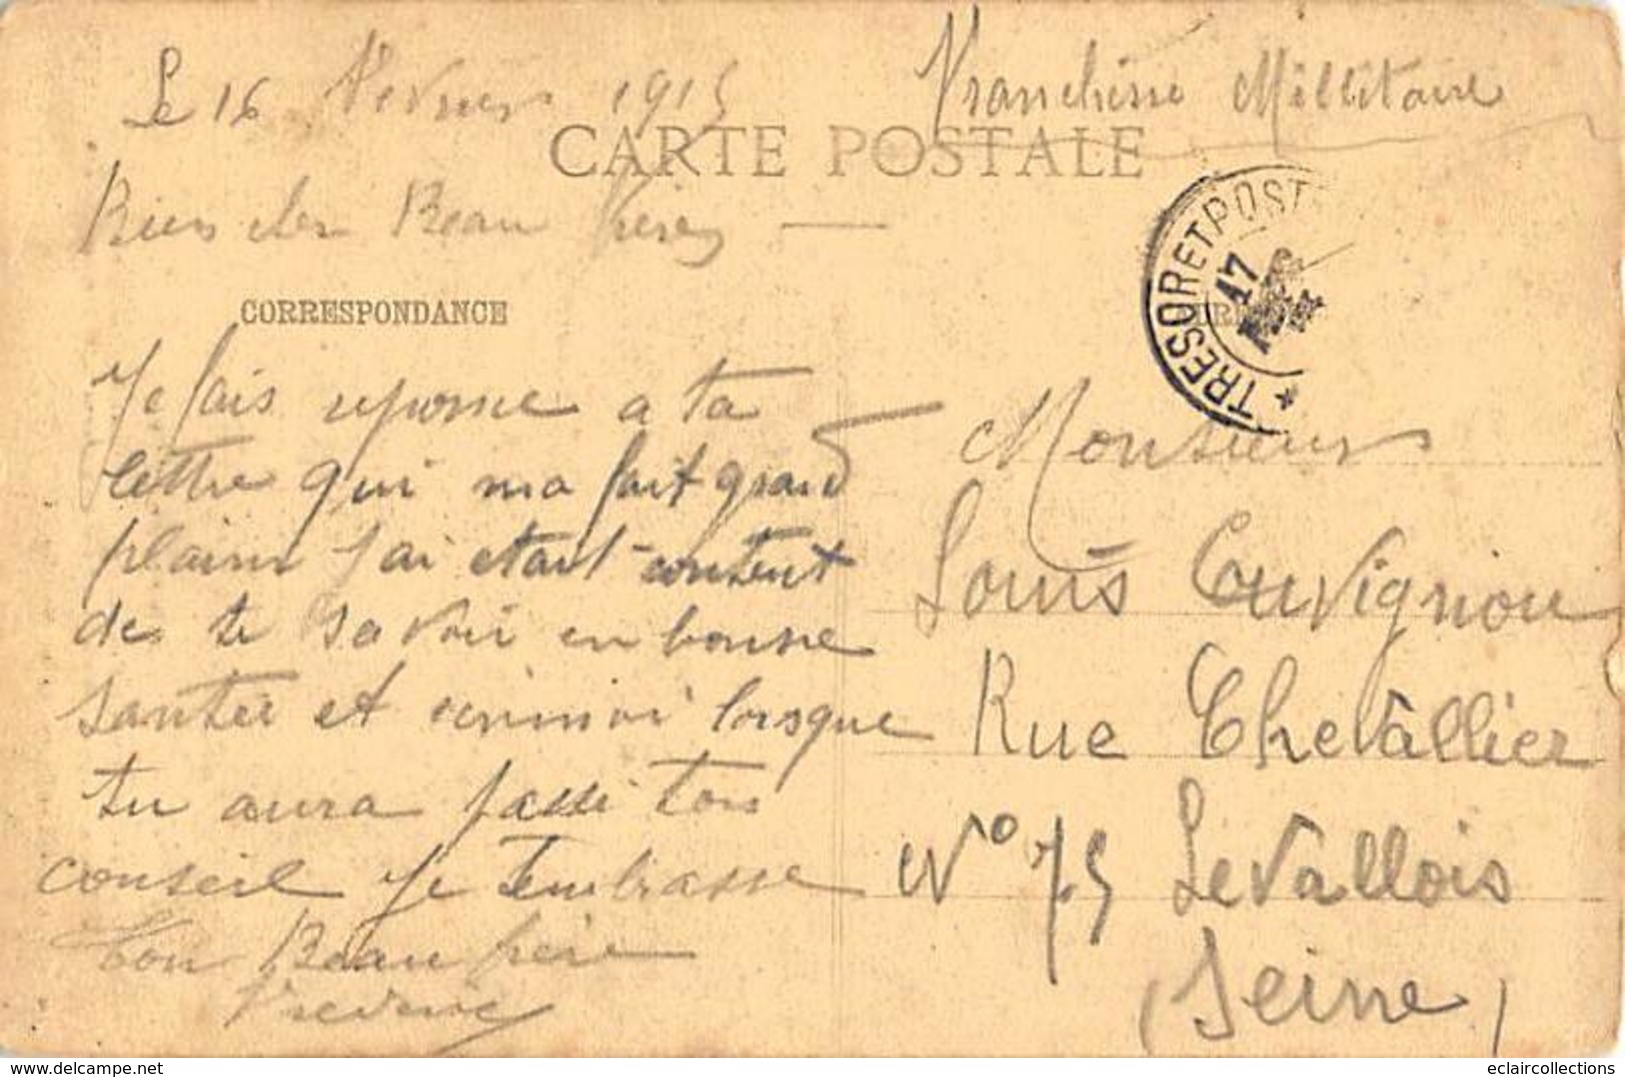 Le 16 Fevrier 1915
Franchisse Millitaire
CARTE POSTALE
Bien cher Beau Frere
TRESOR ET POSTES
17
CORRESPONDANCE
Je fais reponse a ta
lettre qui ma fait grand
plaisir j'ai etait content
de te savoir en bonne
santée et écrimoi lorsque
tu aura passé ton
conseil Je T'embrasse
ton Beau frère
Frederic
Monsieur
Louis Couvignou
Rue Chevallier
N° 75 Levallois
(Seine)
www.delcampe.net
eclaircollections